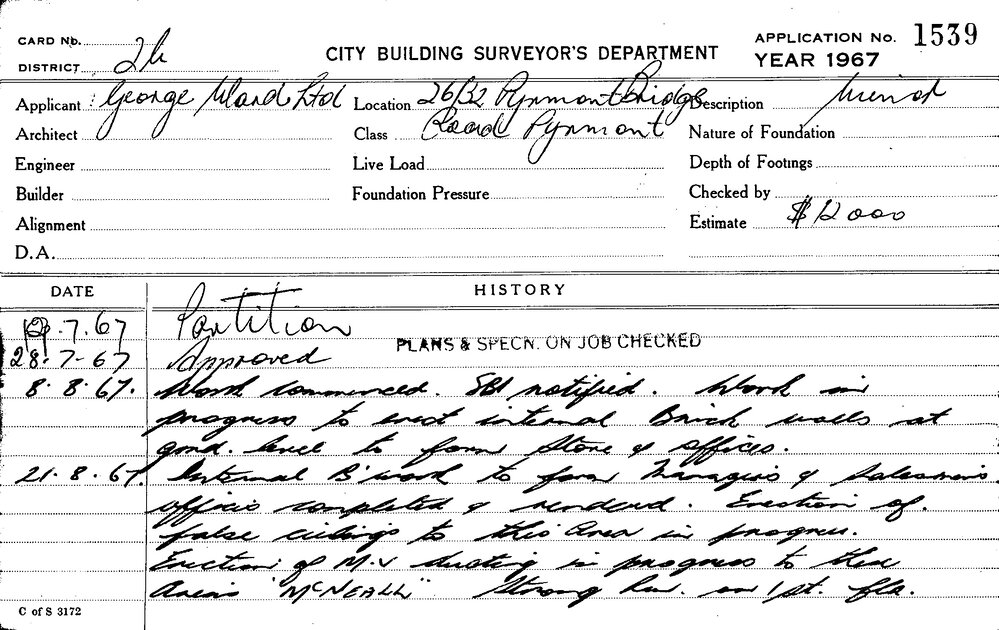 CARD No.
DISTRICT 2b
CITY BUILDING SURVEYOR'S DEPARTMENT
APPLICATION No. 1539
YEAR 1967
Applicant George Ward Ltd
Location 26/32 Pyrmont Bridge
Road Pyrmont
Description Minor
Architect
Class
Nature of Foundation
Engineer
Live Load
Depth of Footings
Builder
Foundation Pressure
Checked by
Alignment
Estimate $12000
D.A.
DATE HISTORY
19.7.67 Partition
PLANS & SPECN. ON JOB CHECKED
28.7-67 Approved
8.8.67. Work commenced. SBI notified. Work in
progress to erect internal Brick walls at
gnd. level to form Store & offices.
21.8.67. Internal B'work to form Manager's & Salesmens
offices completed & rendered. Erection of.
false ceilings to this area in progress.
Erection of M.V ducting in progress to these
Areas "McNEALL" Strong Rm. on 1st. flr.
C of S 3172